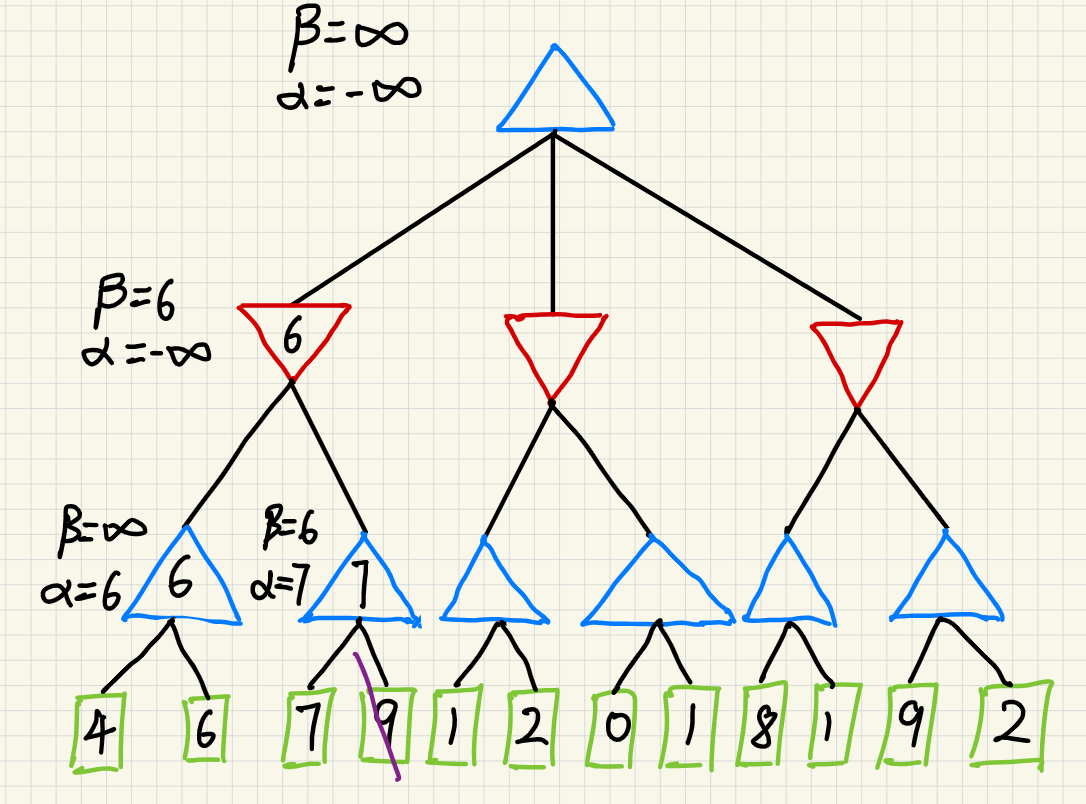 β=∞
α=-∞
β=6
α=-∞
6
β=∞
α=6
6
β=6
α=7
7
4 6 7 9 1 2 0 1 8 1 9 2